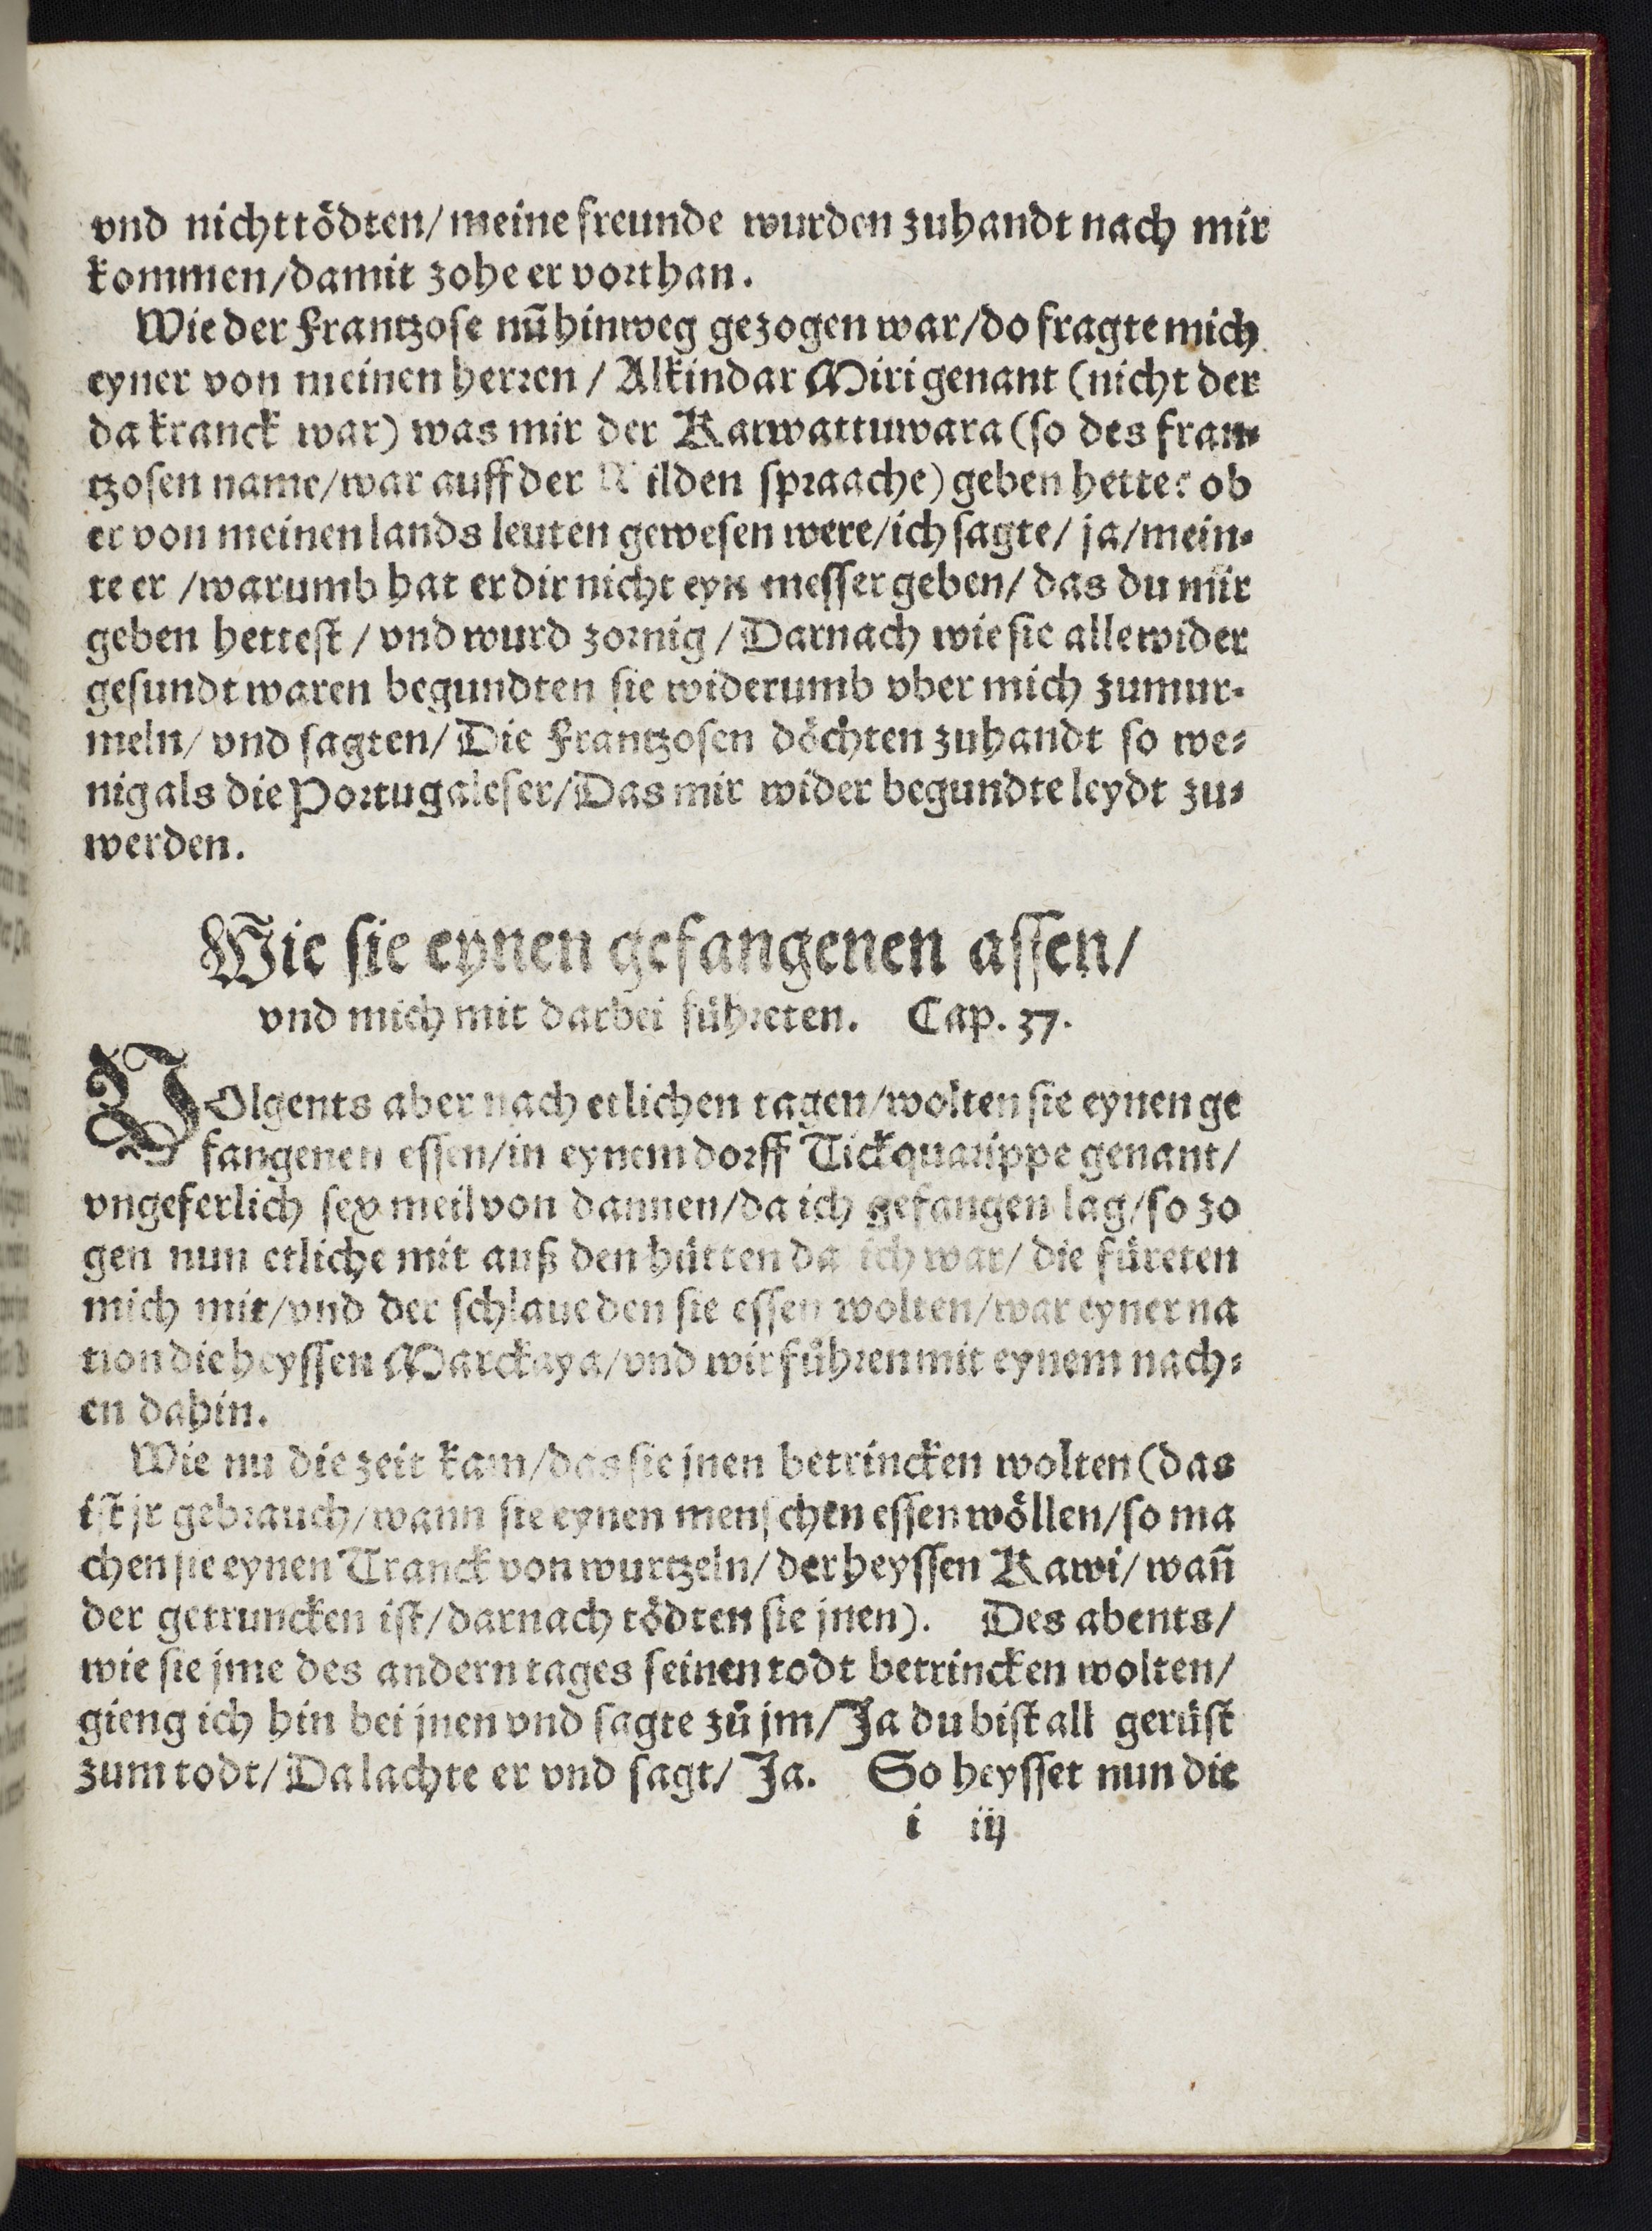 vnd nicht tödten/ meine freunde wurden zuhandt nach mir
kommen/ damit zohe er vorthan.
Wie der Frantzose nū hinweg gezogen war/ do fragte mich
eyner von meinen herren / Alkindar Miri genant (nicht der
da kranck war) was mir der Karwattuwara (so des fran⸗
tzosen name/ war auff der Wilden spraache) geben hette: ob
er von meinen lands leuten gewesen were/ ich sagte/ ja/ mein⸗
te er / warumb hat er dir nicht eyn messer geben/ das du mir
geben hettest / vnd wurd zornig / Darnach wie sie alle wider
gesundt waren begundten sie widerumb vber mich zumur⸗
meln/ vnd sagten/ Die Frantzosen döchten zuhandt so we⸗
nig als die Portugaleser/ Das mir wider begundte leydt zu⸗
werden.
Wie sie eynen gefangenen assen/
vnd mich mit darbei führeten. Cap. 37.
VOlgents aber nach etlichen tagen/ wolten sie eynen ge
fangenen essen/ in eynem dorff Tickquarippe genant/
vngeferlich sex meil von dannen/ da ich gefangen lag/ so zo
gen nun etliche mit auß den hütten da ich war/ die füreten
mich mit/ vnd der schlaue den sie essen wolten/ war eyner na
tion die heyssen Marckaya/ vnd wir führen mit eynem nach⸗
en dahin.
Wie nu die zeit kam/ das sie jnen betrincken wolten (das
ist jr gebrauch/ wann sie eynen menschen essen wöllen/ so ma
chen sie eynen Tranck von wurtzeln/ der heyssen Kawi/ wañ
der getruncken ist/ darnach tödten sie jnen). Des abents/
wie sie jme des andern tages seinen todt betrincken wolten/
gieng ich hin bei jnen vnd sagte zů jm/ Ja du bist all gerüst
zum todt/ Da lachte er vnd sagt/ Ja. So heysset nun die
i iij